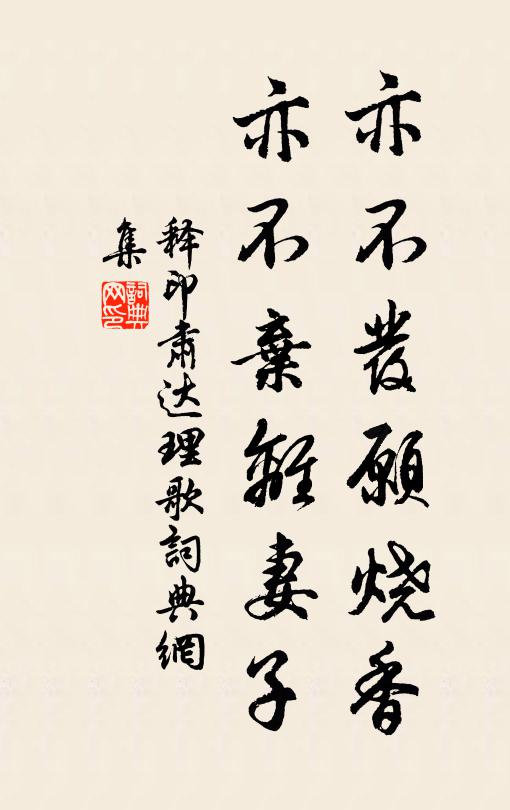 亦不發願烧香
亦不棄離妻子
释印肃达理歌詞典網
集
詞典
网印